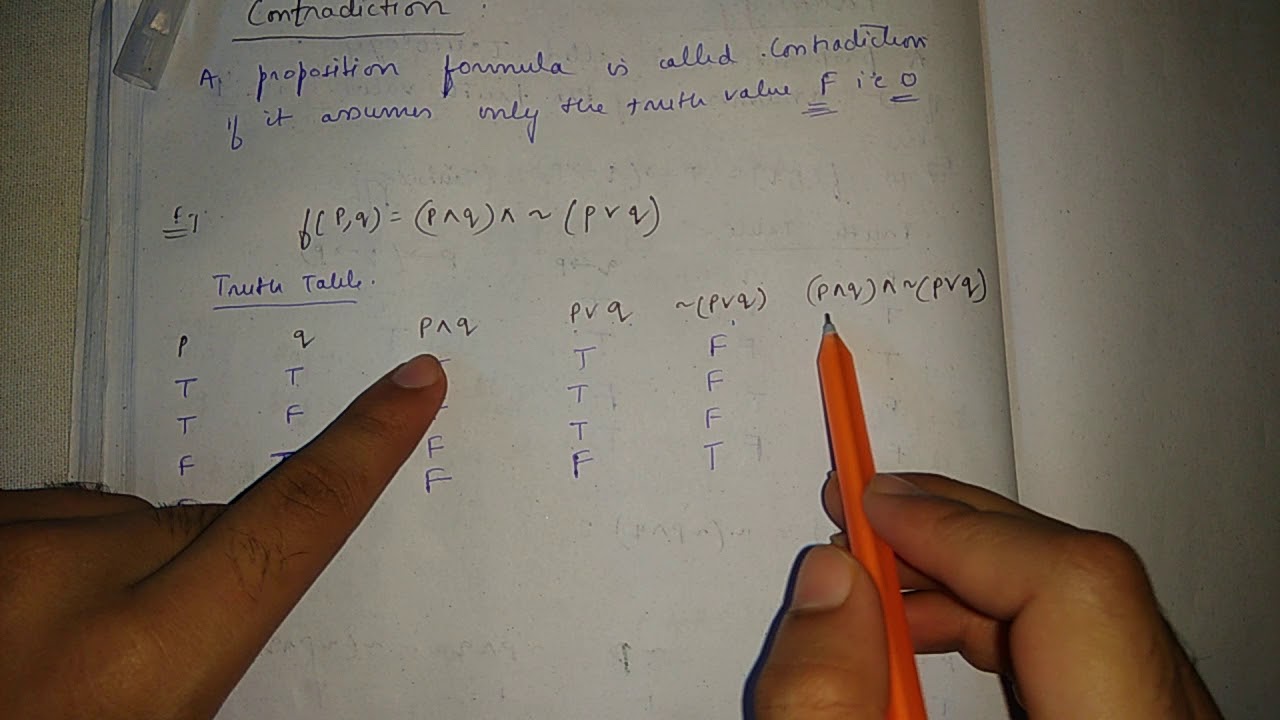 Contradiction :
A proposition formula is called Contradiction
if it assumes only the truth value F i.e 0
Eg f(P,q) = (P∧q)∧ ~ (P∨q)
Truth Table.
P q P∧q P∨q ~(P∨q) (P∧q)∧~(P∨q)
T T T F
T F T F
F F T F
F F T